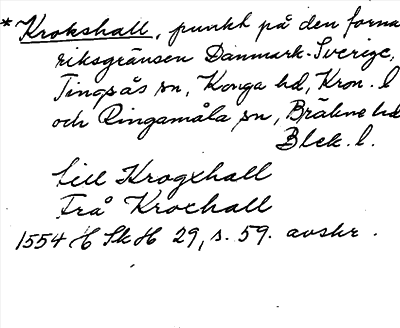 *Krokshall, punkt på den forna
riksgränsen Danmark-Sverige,
Tingsås sn, Konga hd, Kron. l
och Ringamåla sn, Bräkne hd
Blek. l.
till Krogxhall
Frå Krochall
1554 H Sk H 29, s. 59. avskr.